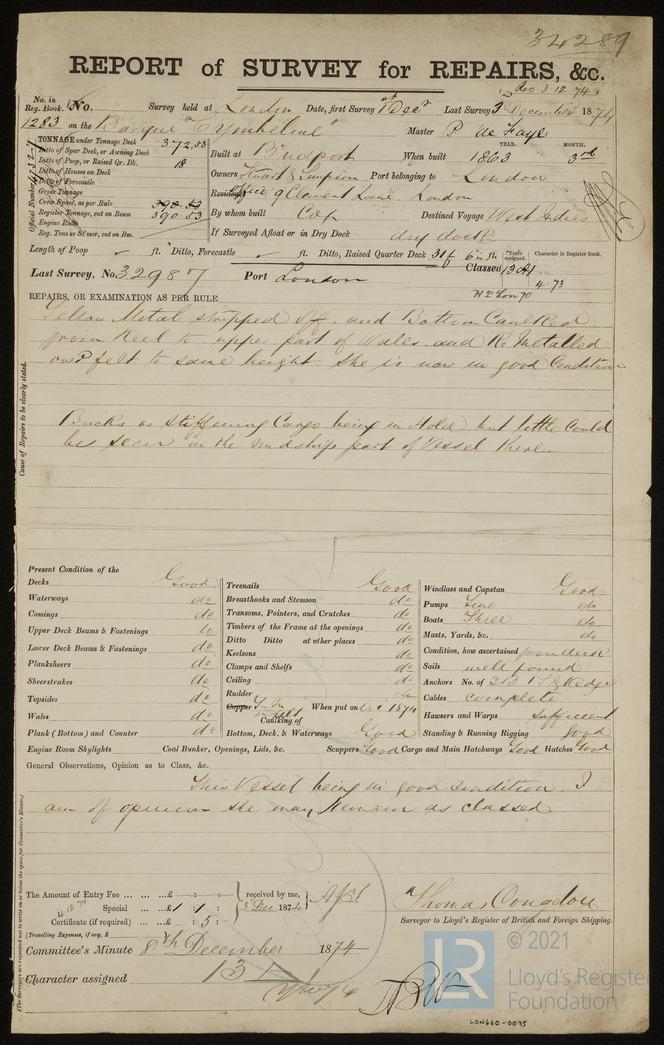 34289
REPORT of SURVEY for REPAIRS, &c.
Rec 3.12.74
No. in Reg. Book. No. Survey held at London Date, first Survey 1st Decr Last Survey 3 December 1874
1283 on the Barque "Cymbeline" Master P de Faye
TONNAGE under Tonnage Deck 372.53
Ditto of Spar Deck, or Awning Deck
Ditto of Poop, or Raised Qr. Dk. 18
Ditto of Houses on Deck
Ditto of Forecastle
Gross Tonnage
Crew Space, as per Rule 390.53
Register Tonnage, cut on Beam 390.53
Engine Room
Reg. Tons as St'mer, cut on Bm.
Official Number
YEAR. MONTH.
Built at Bridport When built 1863 3rd
Owners Stuart & Simpson Port belonging to London
Residence Office 9 Clement Lane London
By whom built Cox Destined Voyage West Indies
If Surveyed Afloat or in Dry Dock dry dock
Length of Poop ft. Ditto, Forecastle ft. Ditto, Raised Quarter Deck 31 ft 6 in ft.
Years assigned. Character in Register Book.
Last Survey, No. 32987 Port London Classed 13 A1
4.73
REPAIRS, OR EXAMINATION AS PER RULE
Yellow Metal stripped off, and Bottom Caulked
from Keel to upper part of Wales, and ReMetalled
over felt to same height. She is now in good Condition
Bricks as stiffening Cargo being in Hold, but little could
be seen in the midships part of Vessel there.
Cause of Repairs to be clearly stated.
Present Condition of the
Decks Good
Waterways do
Comings do
Upper Deck Beams & Fastenings do
Lower Deck Beams & Fastenings do
Planksheers do
Sheerstrakes do
Topsides do
Wales do
Plank (Bottom) and Counter do
Engine Room Skylights Coal Bunker, Openings, Lids, &c.
Treenails Good
Breasthooks and Stemson do
Transoms, Pointers, and Crutches do
Timbers of the Frame at the openings do
Ditto Ditto at other places do
Keelsons do
Clamps and Shelfs do
Ceiling do
Rudder do
Copper When put on Dec 1874
Caulking of
Bottom, Deck, & Waterways Good
Scuppers Good Cargo and Main Hatchways Good Hatches Good
Windlass and Capstan Good
Pumps Two do
Boats Three do
Masts, Yards, &c. do
Condition, how ascertained from deck
Sails well found
Anchors No. of 3 B. 1 S & Kedge
Cables complete
Hawsers and Warps sufficient
Standing & Running Rigging Good
General Observations, Opinion as to Class, &c.
This Vessel being in good condition. I
am of opinion she may Remain as classed
(The Surveyors are requested not to write on or below the space for Committee's Minute.)
The Amount of Entry Fee ... ... ...£ : :
Special ... ...£ 1 : 1 :
Certificate (if required) ...£ : 5 :
(Travelling Expenses, if any, £ )
4.12.74
received by me,
5 Dec 1874
Thomas Congdon
Surveyor to Lloyd's Register of British and Foreign Shipping.
Committee's Minute 8th December 1874
Character assigned 13
© 2021
LR
Lloyd's Register
Foundation
LON660-0035